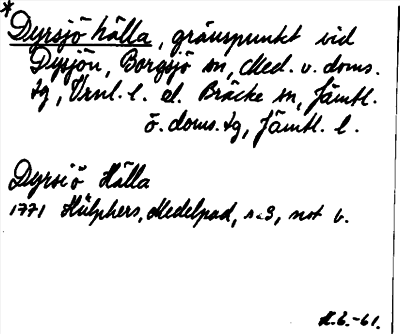 * Dyrsjö hälla, gränspunkt vid
Dysjön, Borgsjö sn, Med. v. doms.
tg, Vrnl. l. el. Bräcke sn, Jämtl.
ö. doms. tg, Jämtl. l.
Dyrsiö Hälla
1771 Hülphers, Medelpad, s. 3, not v.
-61.